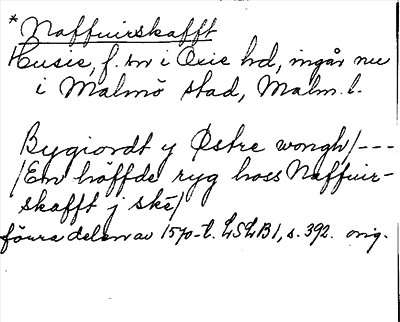 * Naffuirskafft
Husie, f. sn i Oxie hd, ingår nu
i Malmö stad, Malm. l.
Bygiordt y Østre wongh/---
/En höffde ryg hoss Naffuir-
skafft j ské/
förra delen av 1570-t. LSLB1, s. 392. orig.